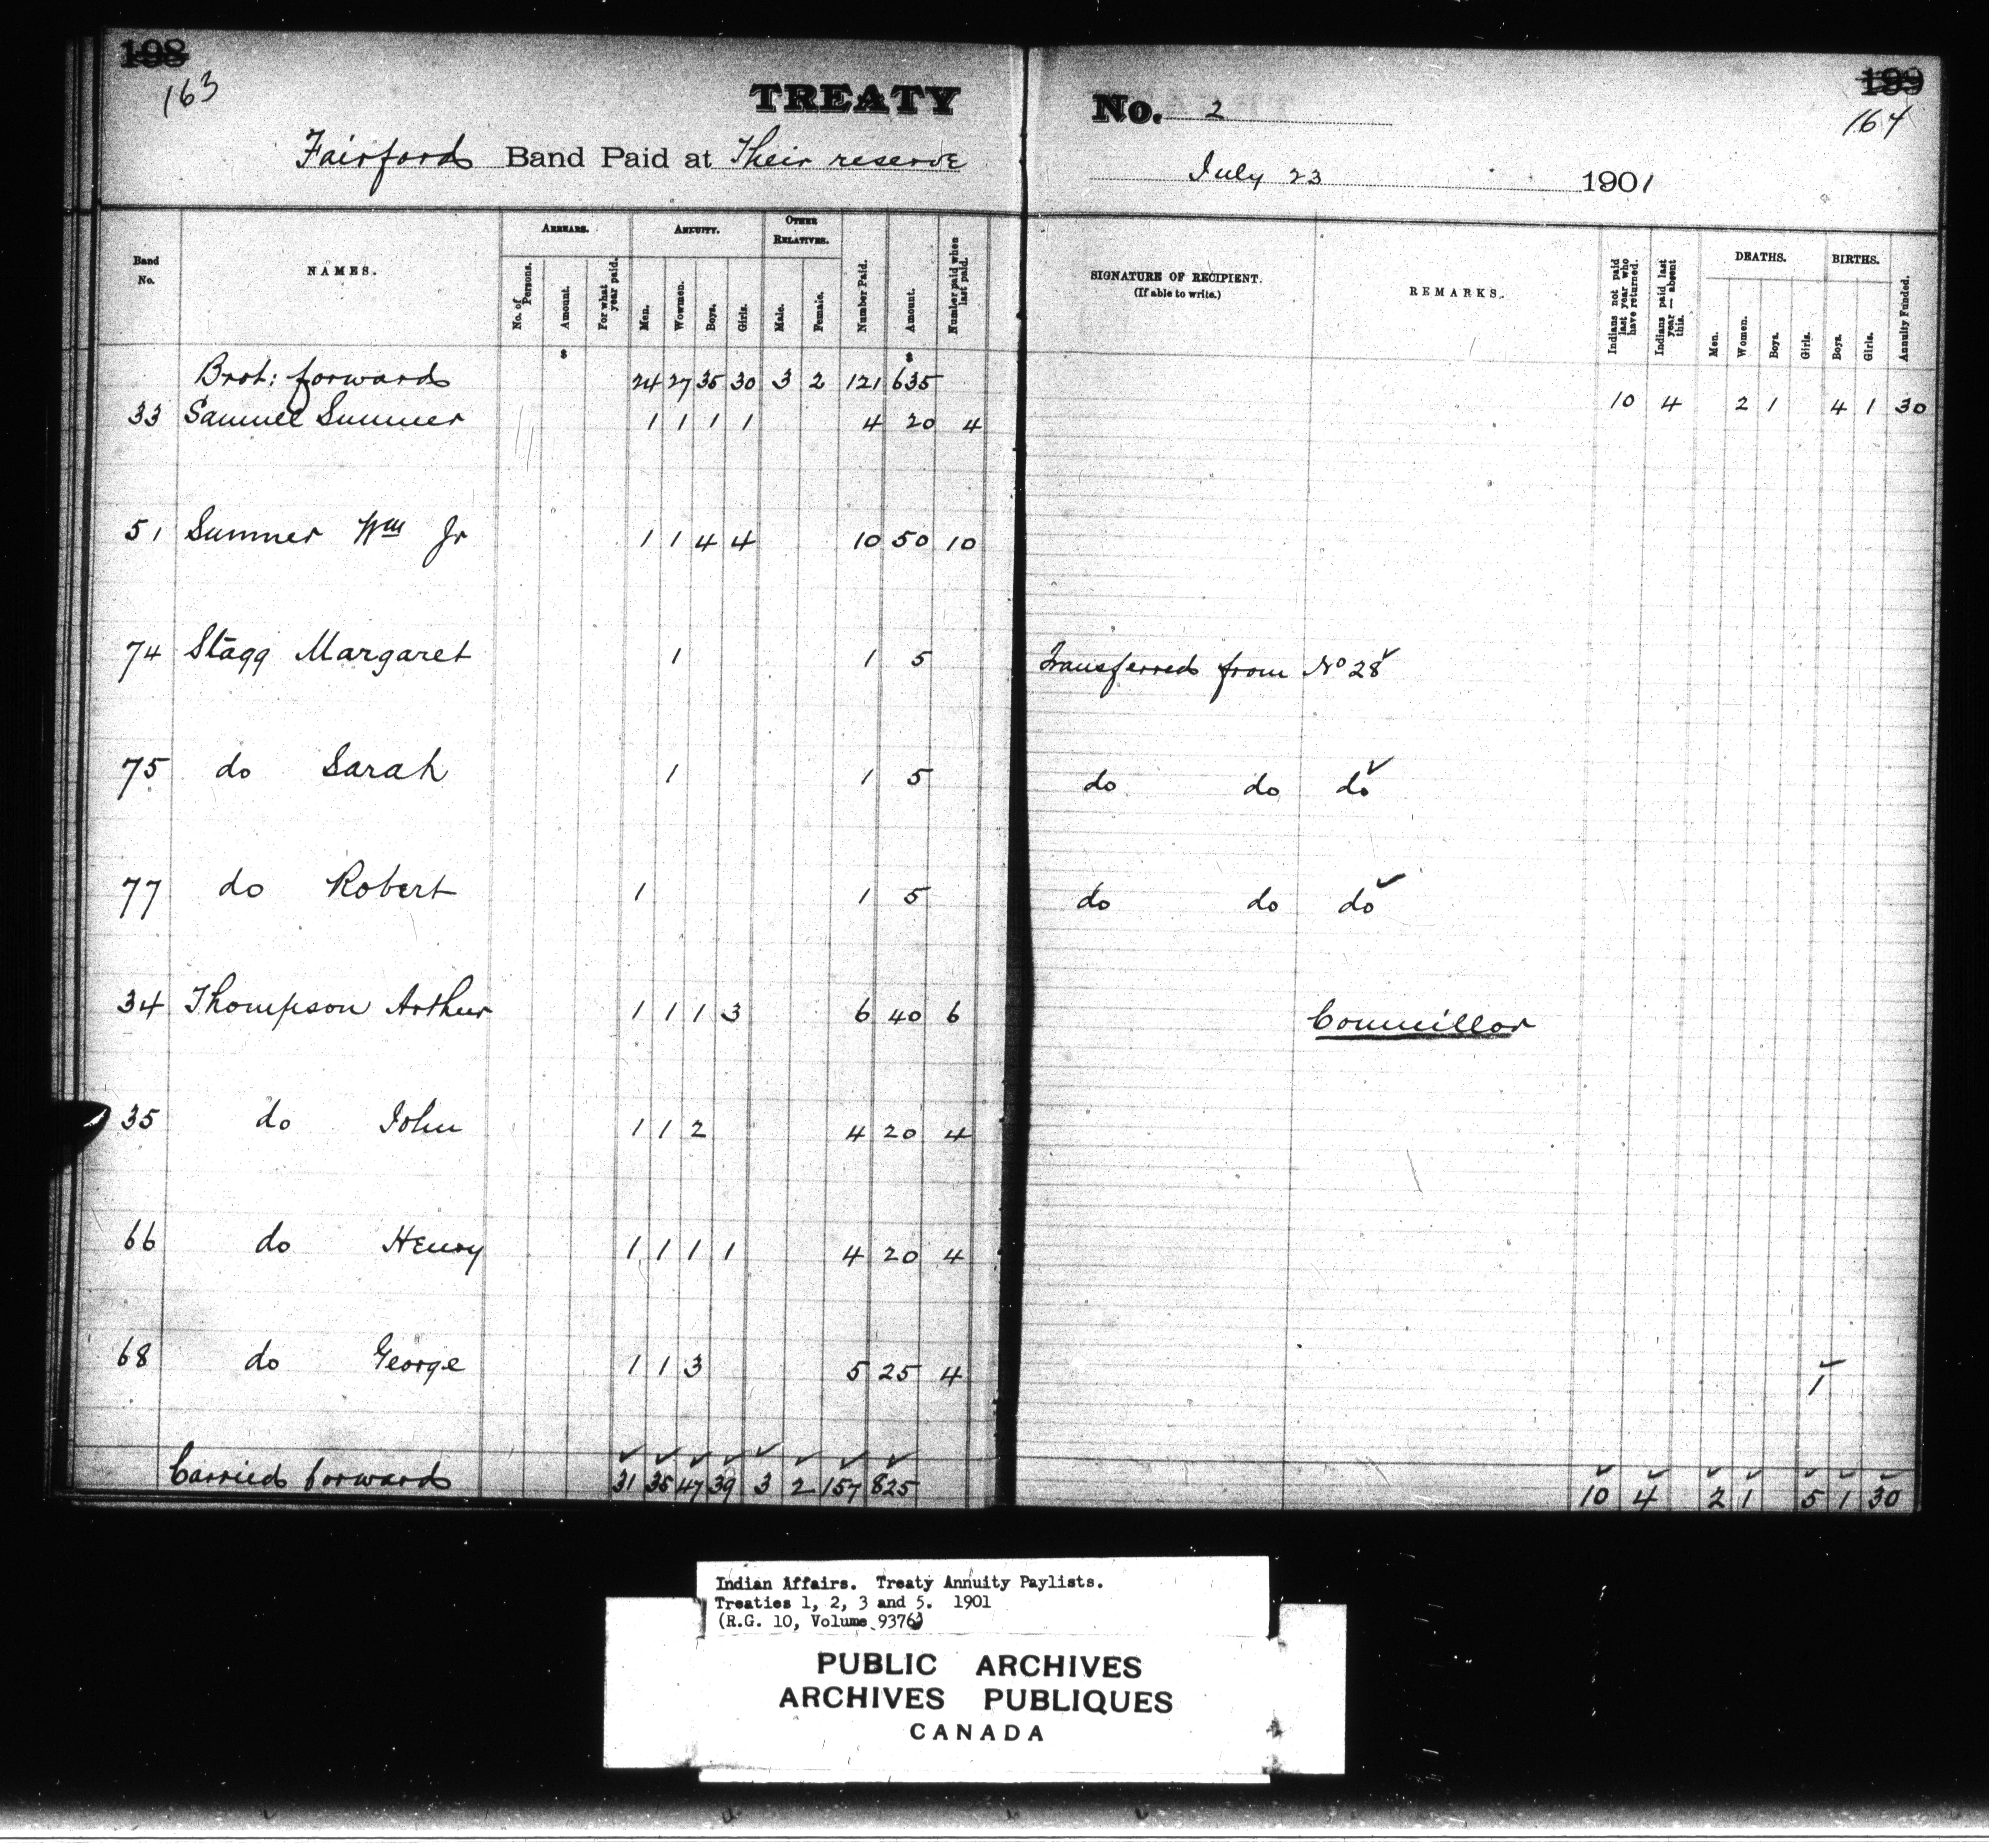 198
163
TREATY No. 2
199
164
Fairford Band Paid at Their reserve
July 23 1901
Band No.
NAMES.
ARREARS.
No. of Persons.
Amount.
For what year paid.
ANNUITY.
Men.
Wowmen.
Boys.
Girls.
OTHER RELATIVES.
Male.
Female.
Number Paid.
Amount.
Number paid when last paid.
SIGNATURE OF RECIPIENT.
(If able to write.)
REMARKS.
Indians not paid last year who have returned.
Indians paid last year — absent this.
DEATHS.
Men.
Women.
Boys.
Girls.
BIRTHS.
Boys.
Girls.
Annuity Funded.
$ $
Brot: forward 24 27 35 30 3 2 121 635 10 4 2 1 4 1 30
33 Samuel Sumner 1 1 1 1 4 20 4
51 Sumner Wm Jr 1 1 4 4 10 50 10
74 Stagg Margaret 1 1 5 Transferred from No 28 ✓
75 do Sarah 1 1 5 do do do ✓
77 do Robert 1 1 5 do do do ✓
34 Thompson Arthur 1 1 1 3 6 40 6 Councillor
35 do John 1 1 2 4 20 4
66 do Henry 1 1 1 1 4 20 4
68 do George 1 1 3 5 25 4 1 ✓
Carried forward 31 35 47 39 3 2 157 825 10 4 2 1 5 1 30
Indian Affairs. Treaty Annuity Paylists.
Treaties 1, 2, 3 and 5. 1901
(R.G. 10, Volume 9376)
PUBLIC ARCHIVES
ARCHIVES PUBLIQUES
CANADA